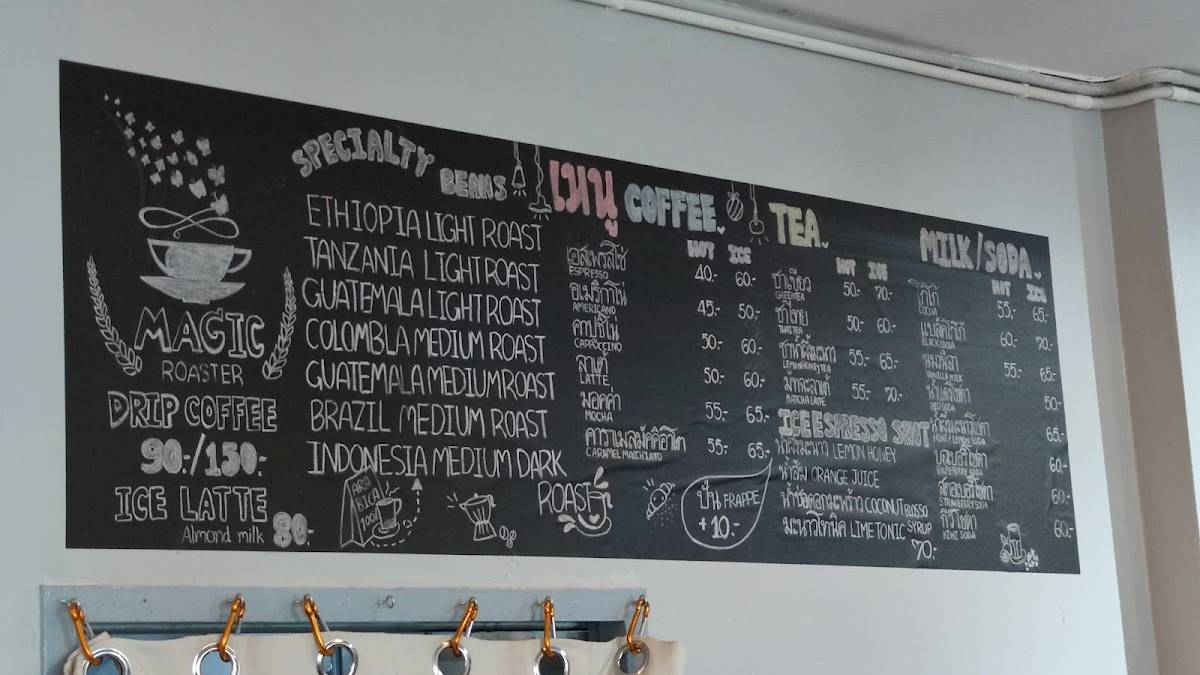 MAGIC
ROASTER
DRIP COFFEE
90.-/150.-
ICE LATTE
Almond milk 80.-
SPECIALTY BEANS
ETHIOPIA LIGHT ROAST
TANZANIA LIGHT ROAST
GUATEMALA LIGHT ROAST
COLOMBLA MEDIUM ROAST
GUATEMALA MEDIUM ROAST
BRAZIL MEDIUM ROAST
INDONESIA MEDIUM DARK
ARABICA 100%
ROAST
เมนู COFFEE
HOT ICE
เอสเพรสโซ่ 40.- 60.-
ESPRESSO
อเมริกาโน่ 45.- 50.-
AMERICANO
คาปูชิโน่ 50.- 60.-
CAPPUCCINO
ลาเต้ 50.- 60.-
LATTE
มอคค่า 55.- 65.-
MOCHA
คาราเมลมัคคิอาโต 55.- 65.-
CARAMEL MACCHIATO
ปั่น FRAPPE
+10.-
TEA
HOT ICE
ชาเขียว 50.- 70.-
GREENTEA
ชาไทย 50.- 60.-
THAITEA
ชาน้ำผึ้งมะนาว 55.- 65.-
LEMONHONEYTEA
มัทฉะลาเต้ 55.- 70.-
MATCHA LATTE
ICE ESPRESSO SHOT
น้ำผึ้งมะนาว LEMON HONEY
น้ำส้ม ORANGE JUICE
น้ำช่อดอกมะพร้าว COCONUT BLOSSO
SYRUP
มะนาวโทนิค LIME TONIC
70.-
MILK/SODA
HOT ICE
โกโก้ 55.- 65.-
COCOA
60.- 70.-
55.- 65.-
VANILLA MILK
น้ำแดงโซดา 50.-
RED SODA
น้ำผึ้งมะนาวโซดา 65.-
HONEY LEMON SODA
60.-
สตรอเบอรี่โซดา 60.-
STRAWBERRY SODA
กีวี่โซดา 60.-
KIWI SODA